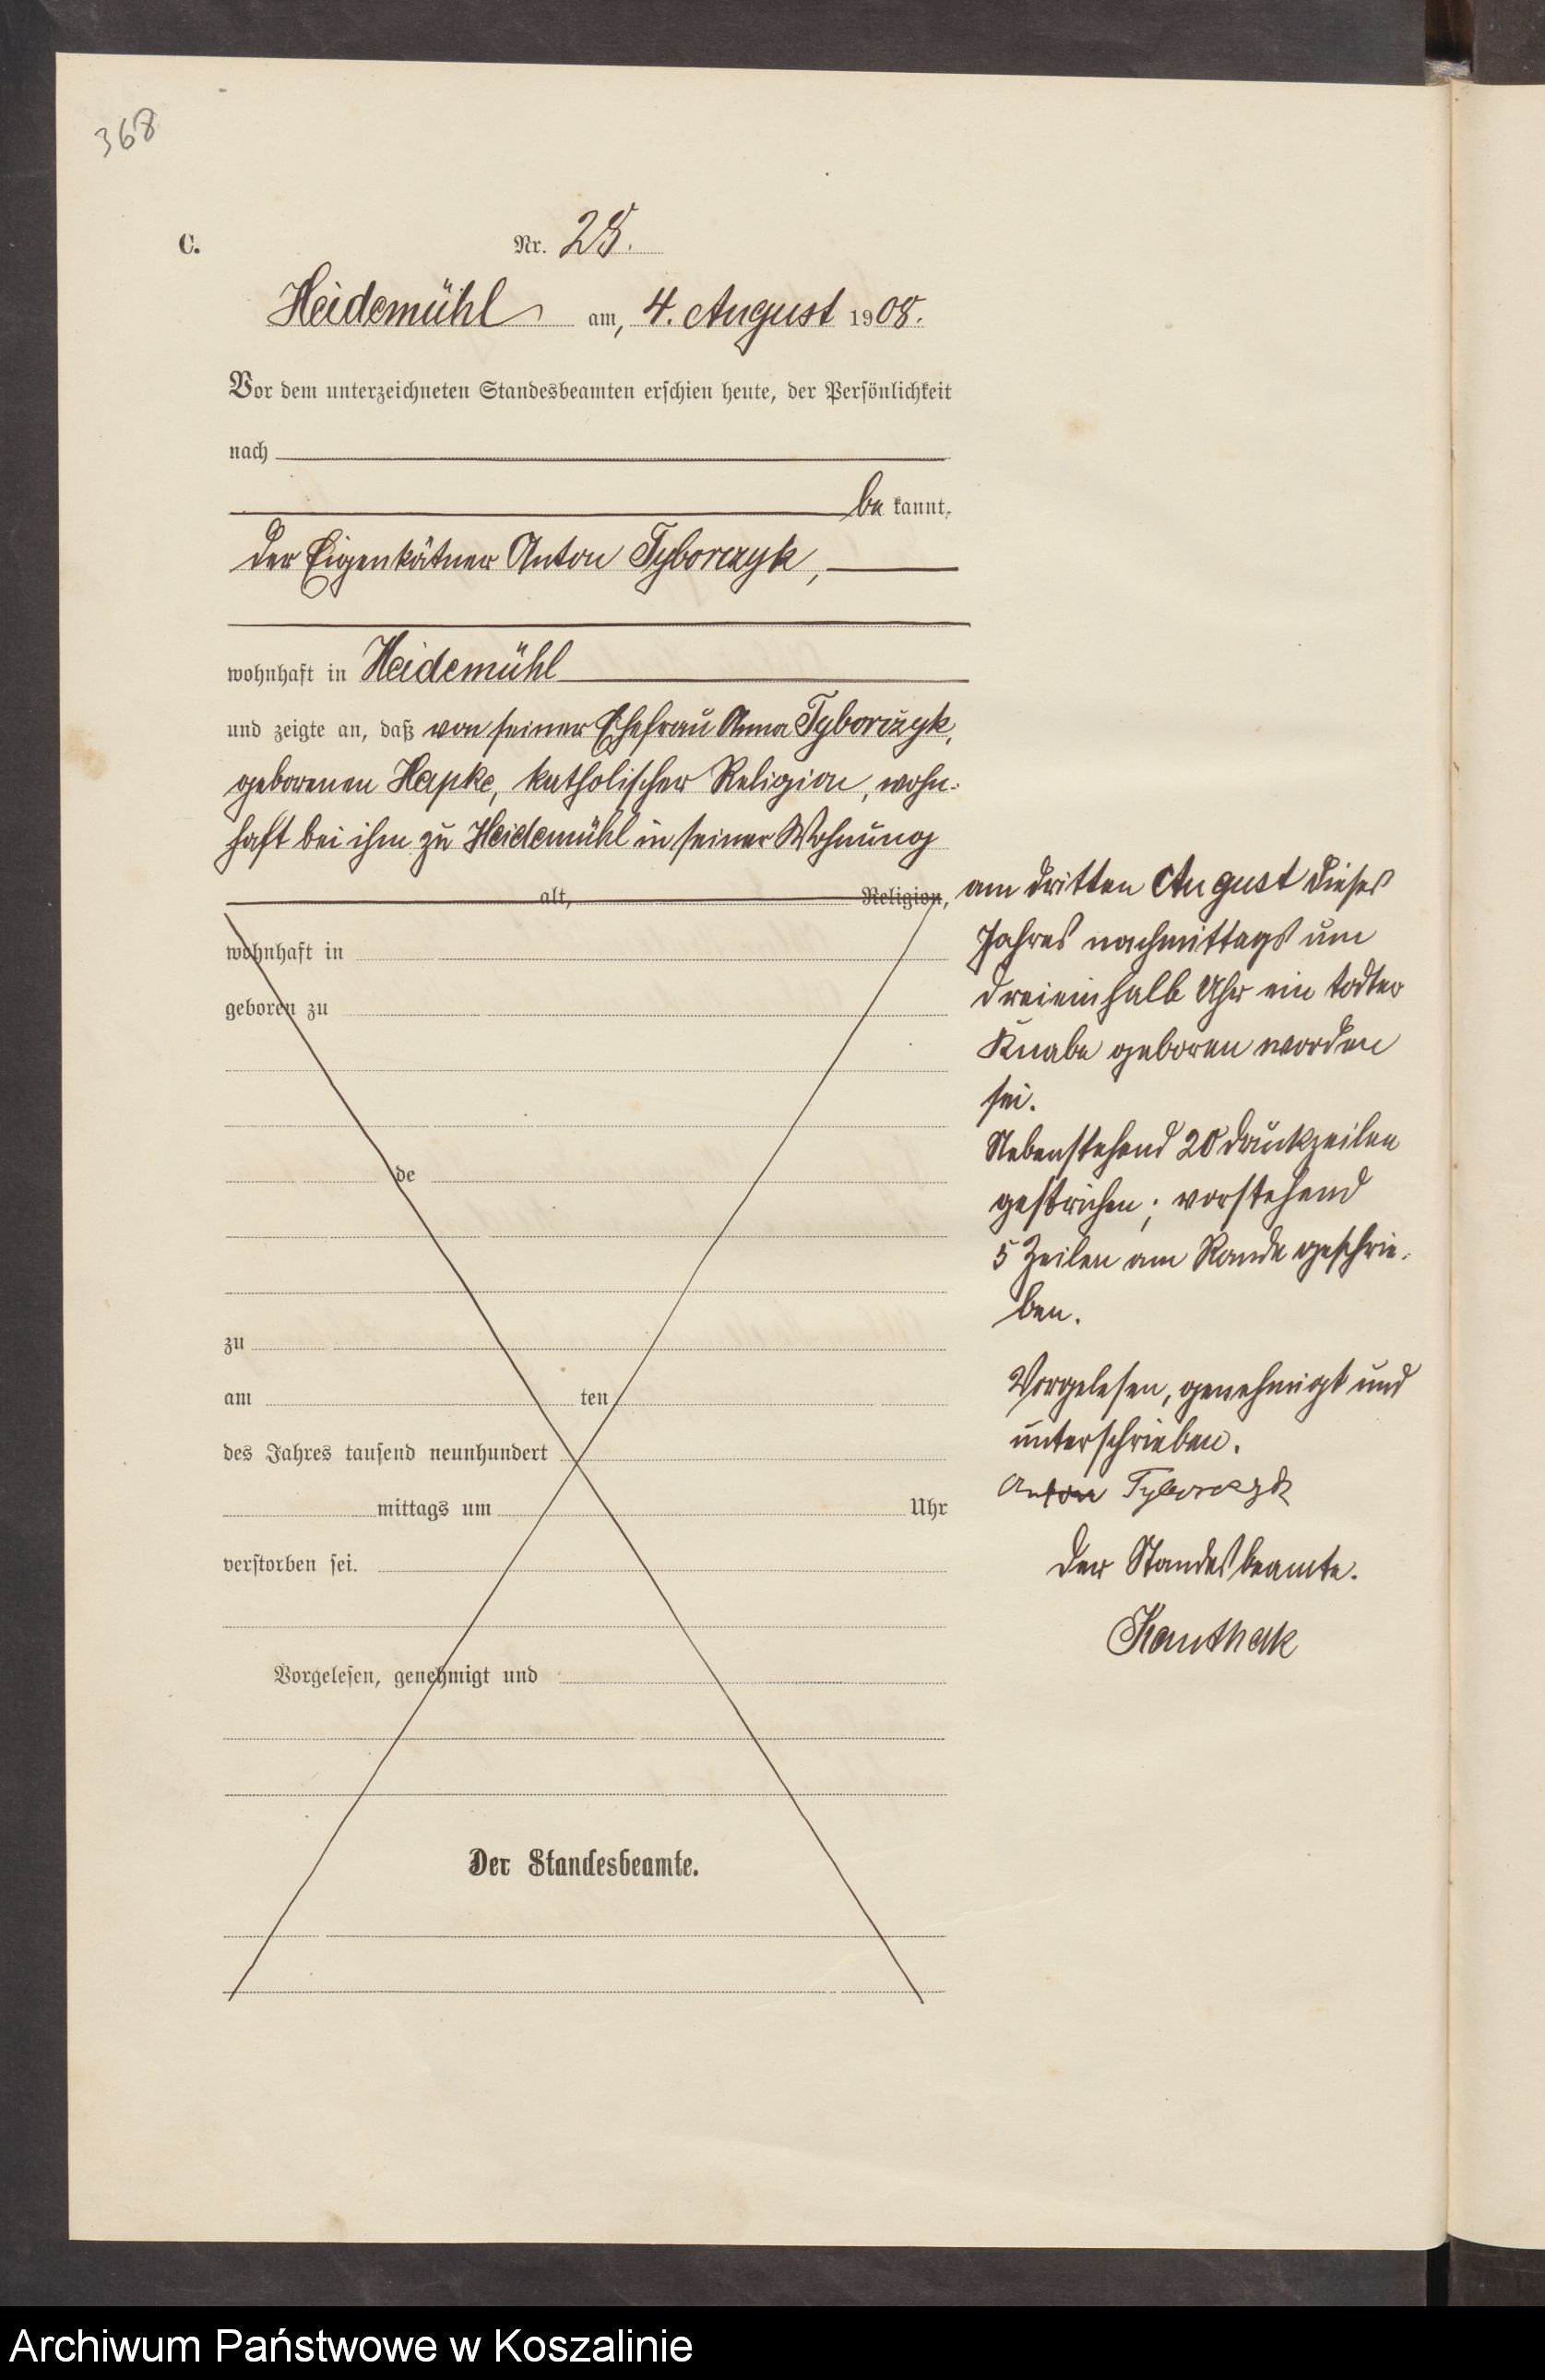 368
C.
Nr. 25.
Heidemühl am, 4. August 1908.
Vor dem unterzeichneten Standesbeamten erschien heute, der Persönlichkeit
nach
be kannt,
der Eigenkätner Anton Tyborczyk,
wohnhaft in Heidemühl
und zeigte an, daß von seiner Ehefrau Anna Tyborczyk,
geborenen Hapke, katholischer Religion, wohn-
haft bei ihm zu Heidemühl in seiner Wohnung
alt, Religion,
am dritten August dieses
Jahres nachmittags um
dreieinhalb Uhr ein todter
Knabe geboren worden
sei.
Nebenstehend 20 Druckzeilen
gestrichen; vorstehend
5 Zeilen am Rande geschrie-
ben.
Vorgelesen, genehmigt und
unterschrieben.
Anton Tyborczyk
Der Standesbeamte.
Kanthak
wohnhaft in
geboren zu
de
zu
am ten
des Jahres tausend neunhundert
mittags um Uhr
verstorben sei.
Vorgelesen, genehmigt und
Der Standesbeamte.
Archiwum Państwowe w Koszalinie